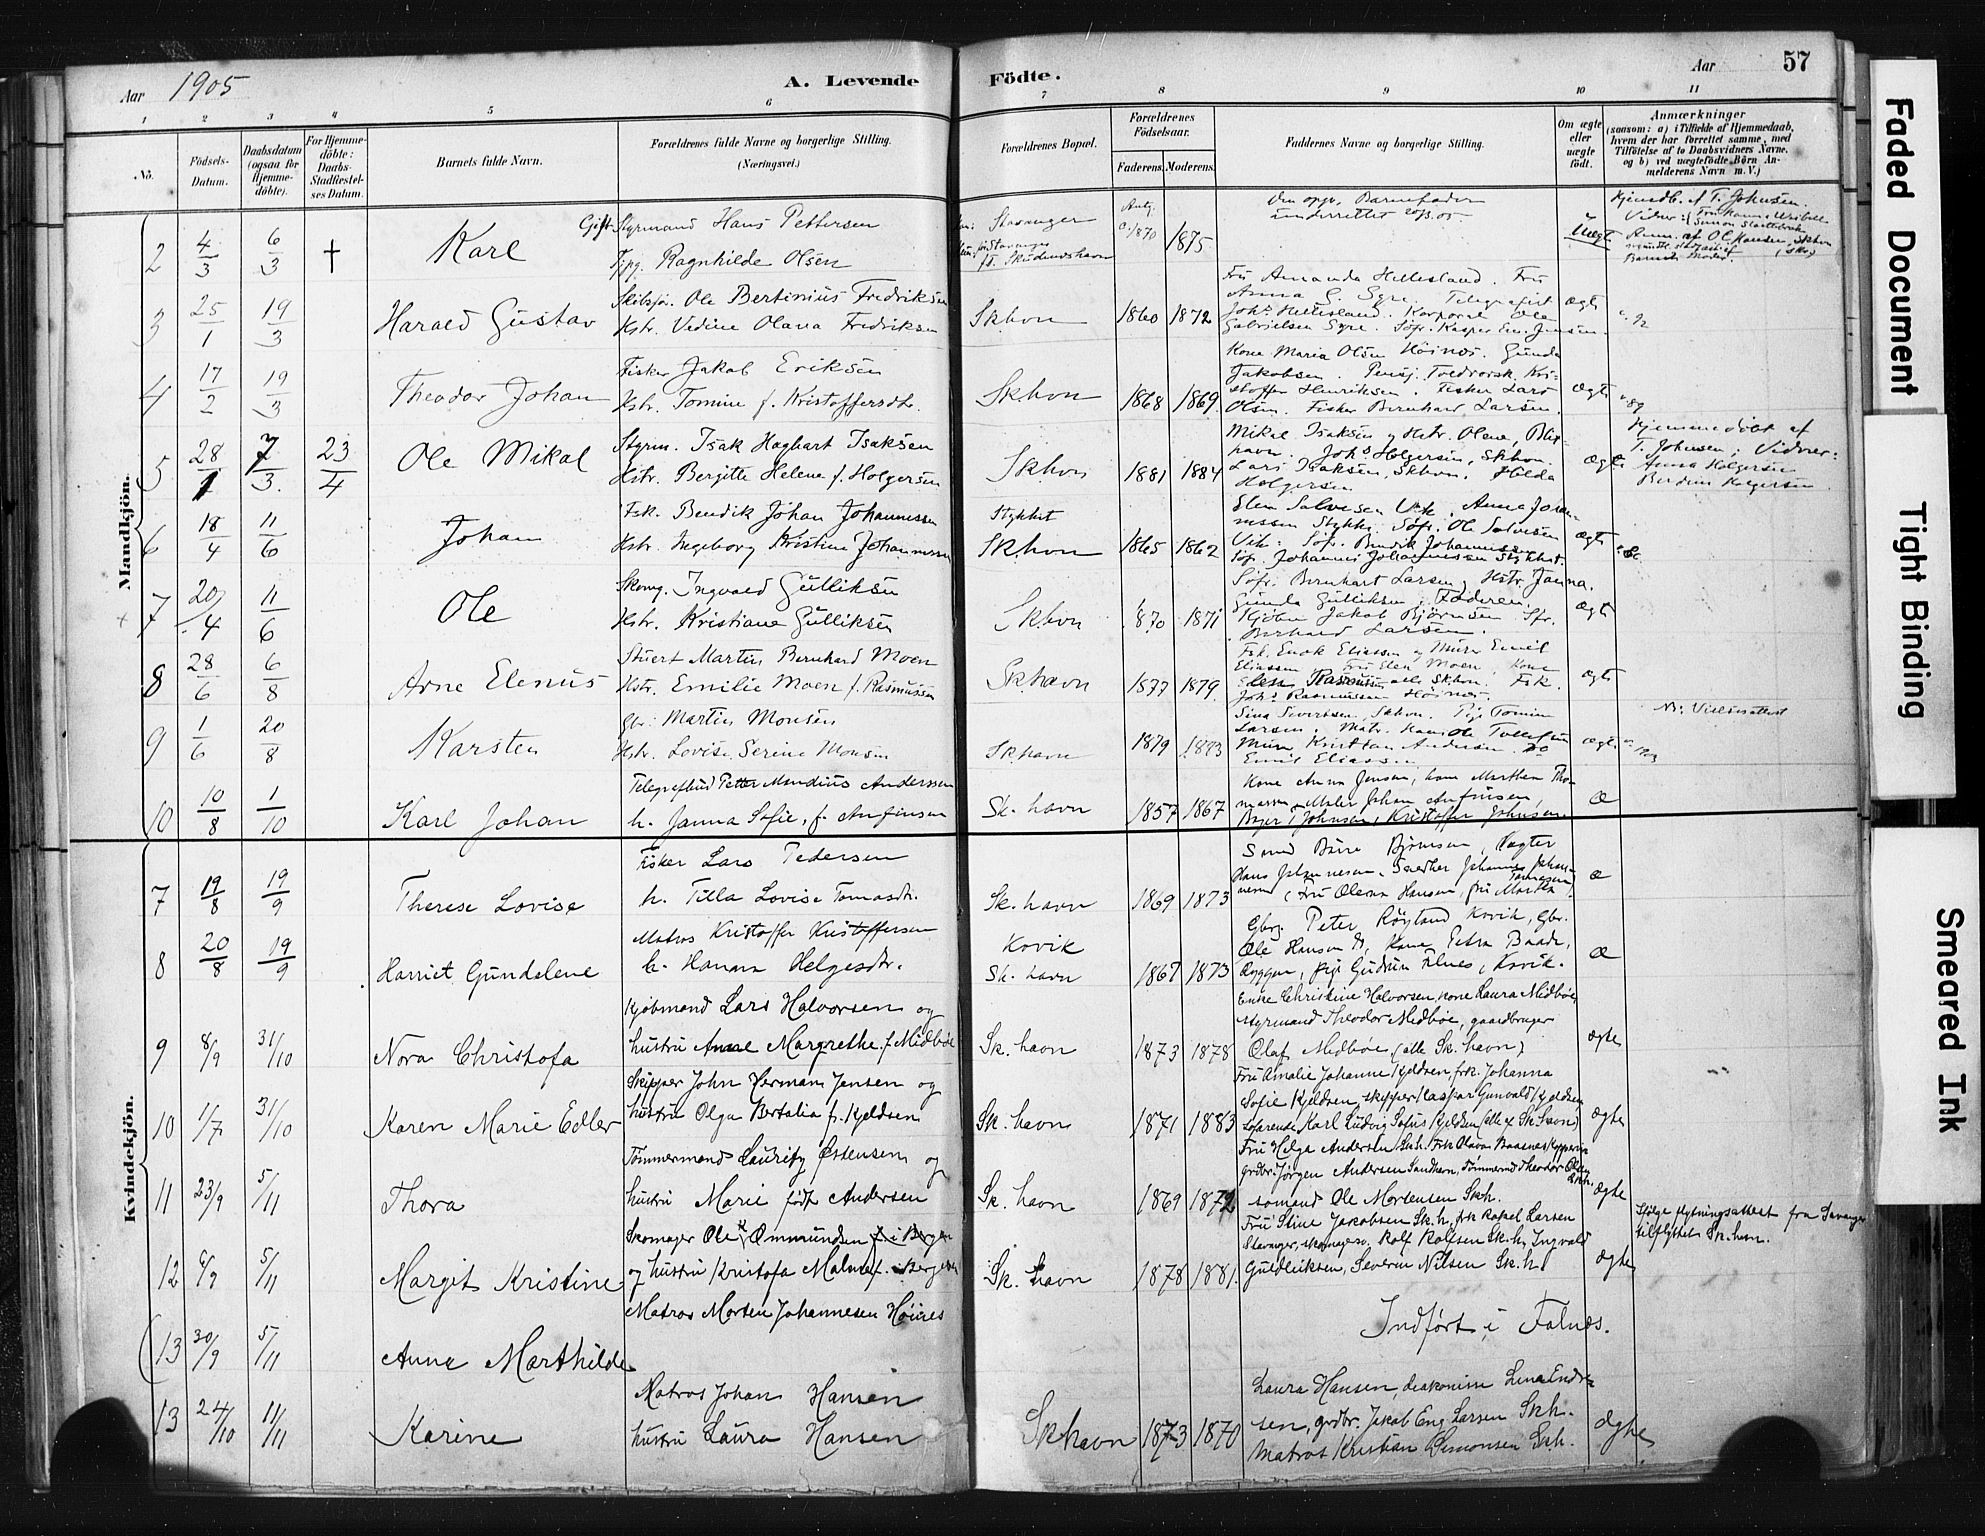 Aar 1905
A. Levende Födte.
Aar 57
1 2 3 4 5 6 7 8 9 10 11
No.
Födsels-Datum.
Daabsdatum (ogsaa for Hjemmedöbte).
For Hjemmedöbte: Daabs-Stadfæstelses Datum.
Barnets fulde Navn.
Forældrenes fulde Navne og borgerlige Stilling.
(Næringsvei.)
Forældrenes Bopæl.
Forældrenes Födselsaar.
Faderens. Moderens.
Faddernes Navne og borgerlige Stilling.
Om ægte eller uægte födt.
Anmærkninger
(saasom: a) i Tilfælde af Hjemmedaab, hvem der har forrettet samme, med Tilföielse af to Daabsvidners Navne. og b) ved uægtefödte Börn Anmelderens Navn m. V.)
Mandkjön.
2 4/3 6/3 † Karl
Gift Styrmand Hans Pettersen
Pige Ragnhilde Olsen
Stavanger
f. Skudeneshavn
Antg. c. 1870 1875
Den opgr. Barnefader
underrettet 20/3.05
Uægte
Hjemdb. af T. Johnsen.
Barnets Moder.
3 25/1 19/3 Harald Gustav
Skibsfr. Ole Bertinius Fredriksen
Hstr. Vedine Olava Fredriksen
Skhvn 1860 1872
Fru Amanda Hillesland. Fru
Anna G. Syre. Telegrafist
Johs Hillesland. Korporal Ole
Gabrielsen Syre. Söfr. Kasper Em. Jensen.
ægte
4 17/2 19/3 Theodor Johan
Fisker Jakob Eriksen
Hstr. Tomine f. Kristoffersdtr.
Skhvn 1868 1869
Kone Maria Olsen Höines. Gunda
Jakobsen. Pensj. Toldrorsk. Kri-
stoffer Henriksen. Fisker Lars
Olsen. Fisker Bernhard Larsen.
ægte
5 28/1 7/3 23/4 Ole Mikal
Styrm. Isak Hagbart Isaksen
Hstr. Bergitte Helene f. Holgersen
Skhvn 1881 1884
Mikal Isaksen og Hstr. Olene, Blik-
havn. Johs Holgersen, Skhvn.
Lars Isaksen, Skhvn. Hilda
Holgersen
ægte
Hjemmedöbt af
T. Johnsen; Vidner:
Anna Holgersen
Berdine Holgersen
6 18/4 11/6 Johan
Fsk. Bendik Johan Johannessen
Hstr. Ingeborg Kristine Johannessen
Stykket
Skhvn 1865 1862
Elen Salvesen Vik. Anna Johan-
nessen Stykke. Söfr. Ole Salvesen
Vik. Söfr. Bendik Johannessen
Söfr. Johannes Johannessen Stykket.
ægte
7 20/4 11/6 Ole
Skomg. Ingvald Gulliksen
Hstr. Kristiane Gulliksen
Skhvn 1870 1871
Söfr. Bernhart Larsen og Hstr. Janna.
Gunda Gulliksen. Faderen.
Kjöbm Jakob Björnsen Sfr.
Berhard Larsen.
ægte
8 28/6 6/8 Arne Elenus
Stuert Martin Bernhard Moen
Hstr. Emilie Moen f. Rasmussen
Skhavn 1877 1879
Fsk. Enok Eliassen og Murer Emil
Eliassen. Fru Elen Moen. Kone
Elen Rasmussen alle Skhvn. Fsk.
Johs Rasmussen Höines.
ægte
9 1/6 20/8 Karsten
Gbr. Martin Monsen
Hstr. Lovise Serine Monsen
Skhavn 1879 1883
Sina Sivertsen, Skhvn. Pige Tomine
Larsen. Matr. Hans Ole Tollefsen
Murer Kristian Andersen. do
Emil Eliassen
ægte
NB: Vielsesattest
10 10/8 1/10 Karl Johan
Telegrafbud Petter Mandius Anderssen
h. Janna Sofie, f. Anfinsen
Sk. havn 1857 1867
Kone Anna Jensen, kone Marthea Tho-
massen, Maler Johan Anfinsen,
Bager T Johnsen, Kristoffer Johnsen.
Æ
Kvindekjön.
7 19/8 19/9 Therese Lovise
Fisker Lars Pedersen
h. Tilla Lovise Tomasdtr.
Sk. havn 1869 1873
Smed Börre Björnsen, Vagter
Hans Johannesen, Snedker Johannes Johan-
nesen, Fru Olena Hansen, fru Martha Tomassen
Æ
8 20/8 19/9 Harriet Gundelene
Matros Kristoffer Kristoffersen
h. Hanna Helgesdtr.
Kovik
Sk. havn 1867 1873
Gbrg. Peter Röyland Kovik, Gbr.
Ole Hansen do, Kone Petra Baade,
Dyggen, Pige Gudrun Falnes, Kovik.
Æ
9 8/9 31/10 Nora Christofa
Kjöbmand Lars Halvorsen og
hustru Anne Margrethe f. Midböe
Sk. havn 1873 1878
Enke Christine Halvorsen, kone Laura Midböe,
styrmand Theodor Midböe, gaardbruger
Olaf Midböe (alle Sk. havn)
ægte
10 1/7 31/10 Karen Marie Edler
Skipper John Herman Jensen og
hustru Olga Bertalia f. Kjeldsen
Sk. havn 1871 1883
Fru Amalie Johanne Kjeldsen, frk. Johanna
Sofie Kjeldsen, skipper Kaspar Gunvald Kjeldsen
Söfarende Karl Ludvig Sofus Kjeldsen (alle af Sk. havn)
ægte
11 23/9 5/11 Thora
Tömmermand Lauritz Östensen og
hustru Marie födt Andersen
Sk. havn 1869 1872
Fru Helga Andersen Sk.h. Frk Olava Baasnes Kopervik
grdbr. Jörgen Andersen Sandhvm, Tömmermd Theodor Olsen Sk.h.
sömand Ole Mortensen Skh.
ægte
12 6/9 5/11 Margit Kristine
Skomager Ole Ommundsen f. i Bergen
og hustru Kristofa Malene f. i Bergen
Sk. havn 1878 1881.
Fru Stine Jakobsen Sk.h, frk Rakel Larsen
Stavanger, skomagersv. Rolf Rolfsen Sk.h, Ingvald
Guldliksen, Severin Nilsen Sk.h.
ægte
Ifölge flytningsattest fra Stavanger
tilflyttet Sk.havn.
(13 30/9 5/11 Anne Marthilde
Matros Morten Johannesen Höines
Indfört i Falnes.
13 24/10 11/11 Karine
Matros Johan Hansen
hustru Laura Hansen
Skhavn 1873 1870
Laura Hansen, diakonisse Lina Endre-
sen, grdbr. Jakob Eng Larsen Skh.
matros Kristian Simonsen Skh.
ægte
Faded Document
Tight Binding
Smeared Ink